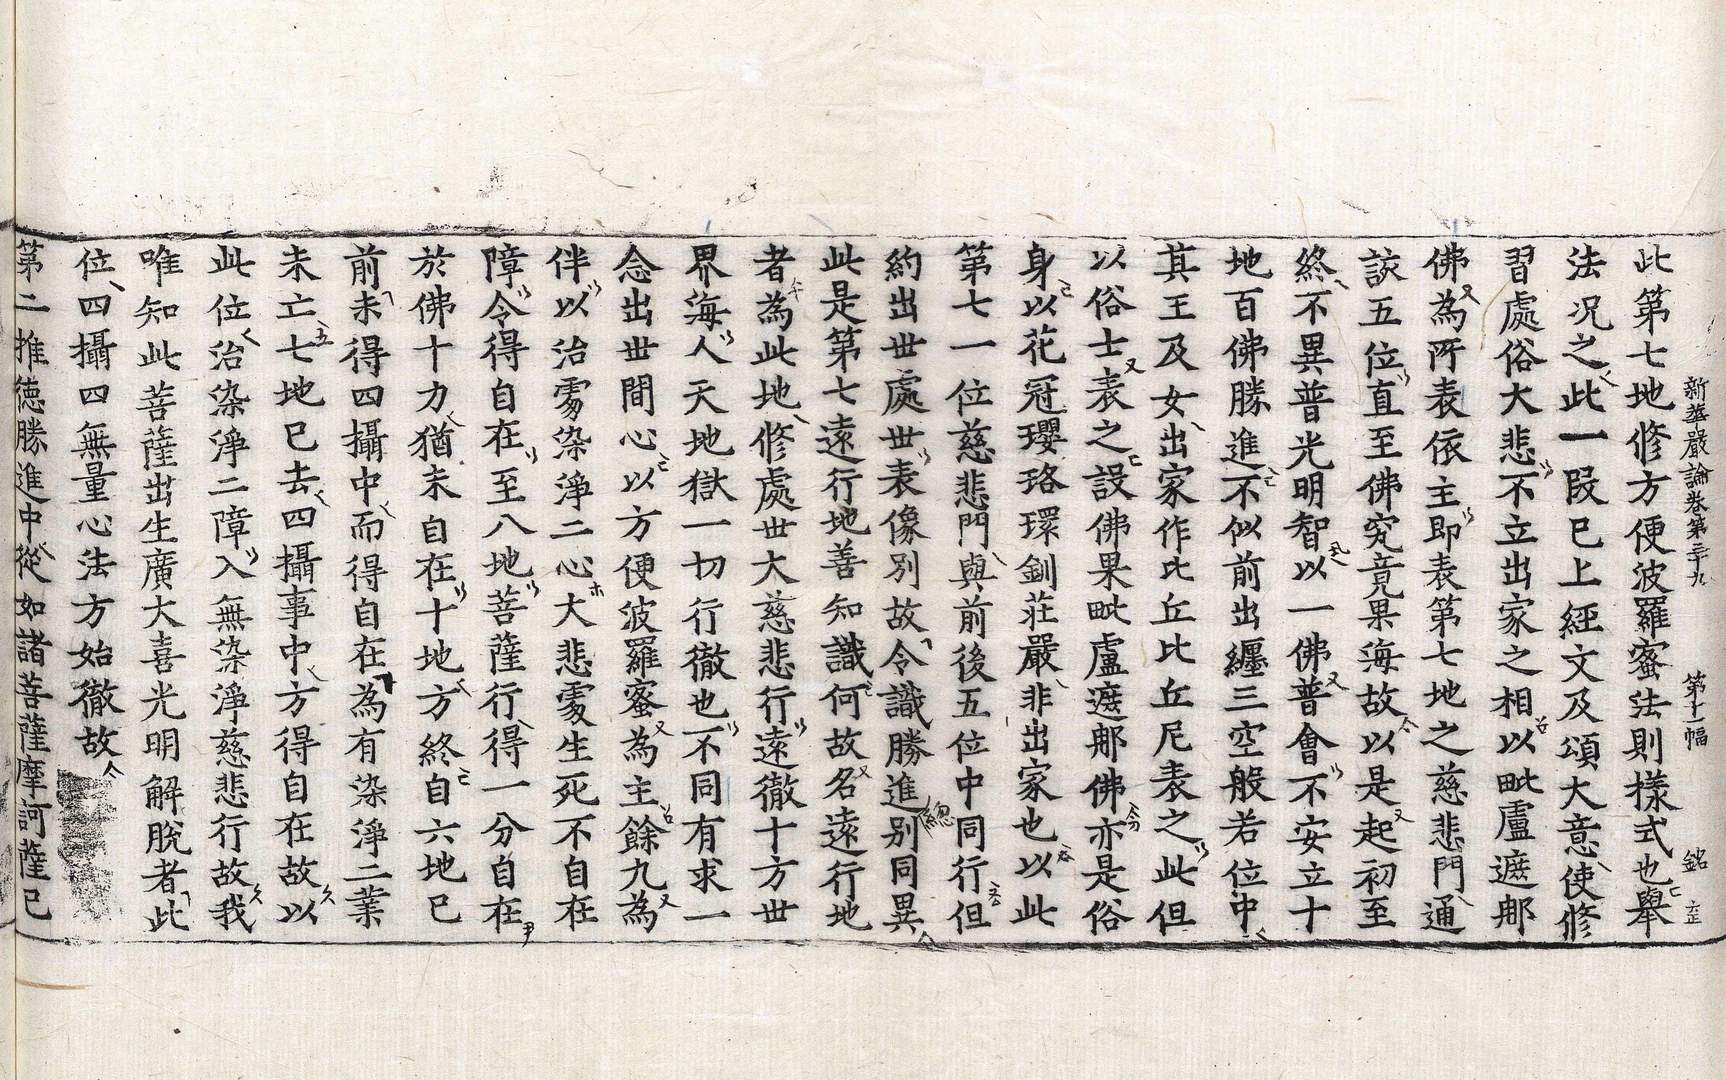 新華嚴論卷第三十九 第十一幅 銘 正
此第七地修方便波羅蜜法則樣式也舉
法况之此一段已上經文及頌大意使修
習處俗大悲不立出家之相以毗盧遮郍
佛為所表依主即表第七地之慈悲門通
該五位直至佛究竟果海故以是起初至
終不異普光明智以一佛普會不安立十
地百佛勝進不似前出纒三空般若位中
其王及女出家作比丘比丘尼表之此但
以俗士表之設佛果毗盧遮郍佛亦是俗
身以花冠瓔珞環釧莊嚴非出家也以此
第七一位慈悲門與前後五位中同行但
約出世處世表像別故令識勝進别同異
此是第七遠行地善知識何故名遠行地
者為此地修處世大慈悲行遠徹十方世
界海人天地獄一切行徹也不同有求一
念出世間心以方便波羅蜜為主餘九為
伴以治雰染淨二心大悲雰生死不自在
障令得自在至八地菩薩行得一分自在
於佛十力猶未自在十地方終自六地已
前未得四攝中而得自在為有染淨二業
未亡七地已去四攝事中方得自在故以
此位治染淨二障入無染淨慈悲行故我
唯知此菩薩出生廣大喜光明解脫者此
位四攝四無量心法方始徹故
第二推德勝進中從如諸菩薩摩訶薩已